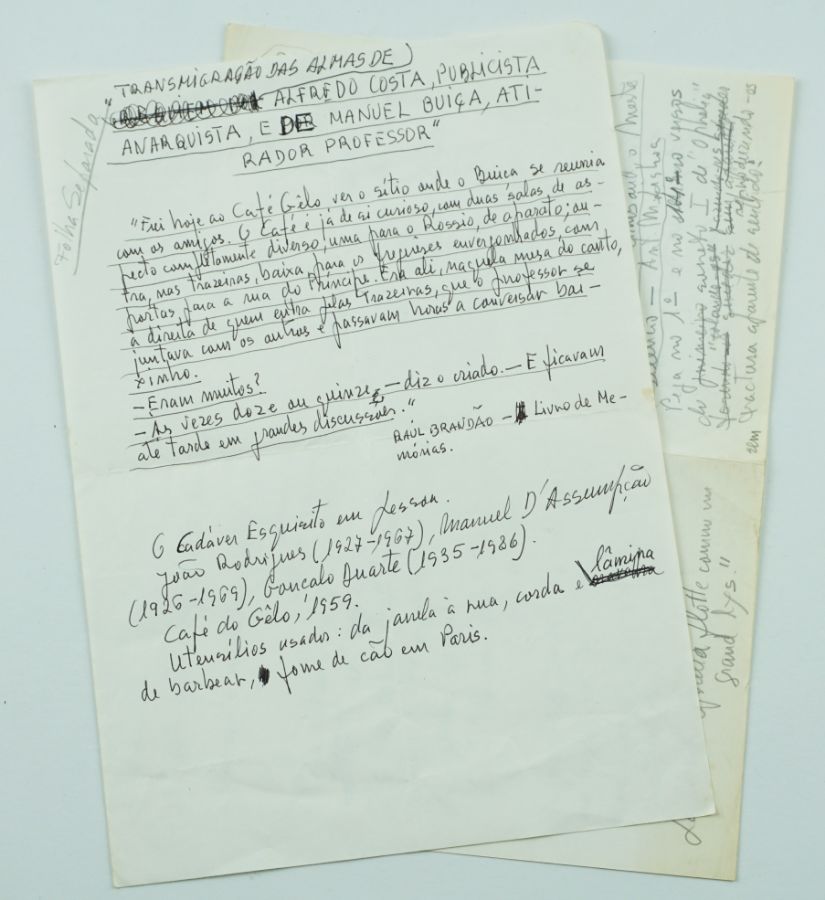 Folha Separada
"TRANSMIGRAÇÃO DAS ALMAS DE
ALFREDO COSTA, PUBLICISTA
ANARQUISTA, E DE MANUEL BUIÇA, ATI-
RADOR PROFESSOR"
"Fui hoje ao Café Gêlo ver o sítio onde o Buiça se reunia
com os amigos. O Café é já de si curioso, com duas salas de as-
pecto completamente diverso, uma para o Rossio, de aparato; ou-
tra, nas trazeiras, baixa, para os fregueses envergonhados, com
portas para a rua do Príncipe. Era ali, naquela mesa do canto,
à direita de quem entra pelas trazeiras, que o professor se
juntava com os outros e passavam horas a conversar bai-
xinho.
— Eram muitos?
— Às vezes doze ou quinze, — diz o criado. — E ficavam
até tarde em grandes discussões."
RAÚL BRANDÃO — Livro de Me-
mórias.
O Cadáver Esquisito em Pessoa.
João Rodrigues (1927-1967), Manuel D'Assumpção
(1926-1969), Goncalo Duarte (1935-1986).
Café do Gêlo, 1959.
Utensílios usados: da janela à rua, corda e lâmina
de barbear, fome de cão em Paris.
Pega no 1º e no versos
do primeiro soneto I de "Ophelia"
sem fractura aparente do
flotte comme un
grand lys."